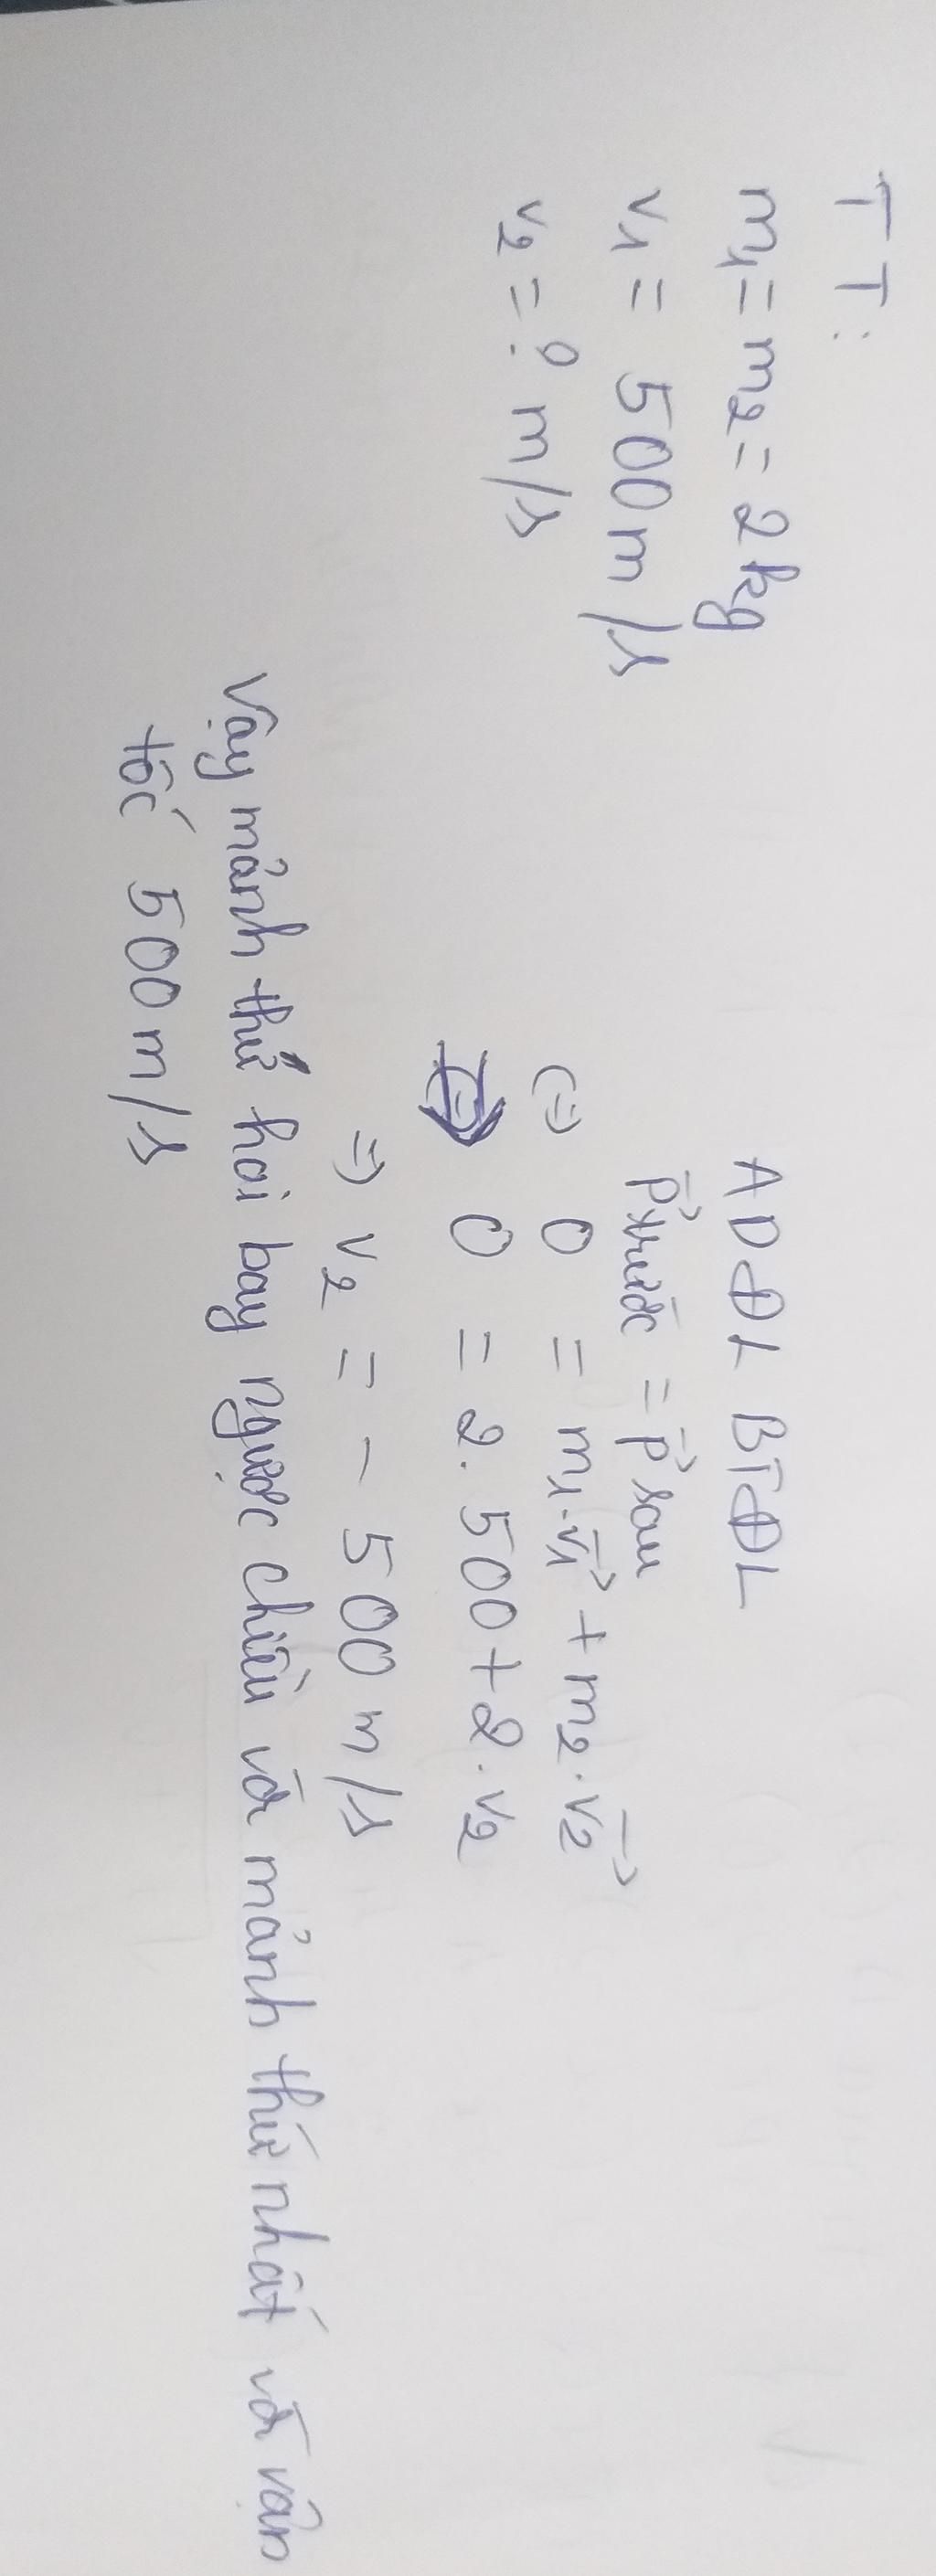 TT:
m₁ = m₂ = 2kg
v₁ = 500m/s
v₂ = ? m/s
ADĐL BTĐL
p⃗trước = p⃗sau
(=) 0 = m₁.v⃗₁ + m₂.v⃗₂
0 = 2.500+2.v₂
=) v₂ = - 500 m/s
Vậy mảnh thứ hai bay ngược chiều và mảnh thứ nhất và vận
tốc 500m/s